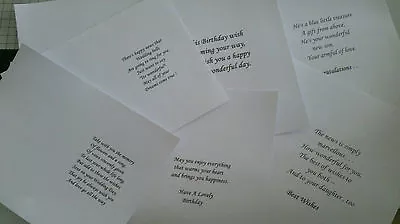 There's happy news that
Wedding bells
Are going to ring for you,
Just want to say
"Be wonderful!
May all of your
Dreams come true"!
is Birthday wish
ming your way,
ish you a happy
nderful day.
He's a blue little treasure
A gift from above,
He's your wonderful,
new son,
Your armful of love
tulations . .
Take with you the memory
Of
To last
That
And go all the way
May you enjoy everything
that warms your heart
and brings you happiness.
Have A Lovely
Birthday
The news is simply
marvellous
How wonderful for you,
The best of wishes
to you both,
And to your daughter, too
Best Wishes